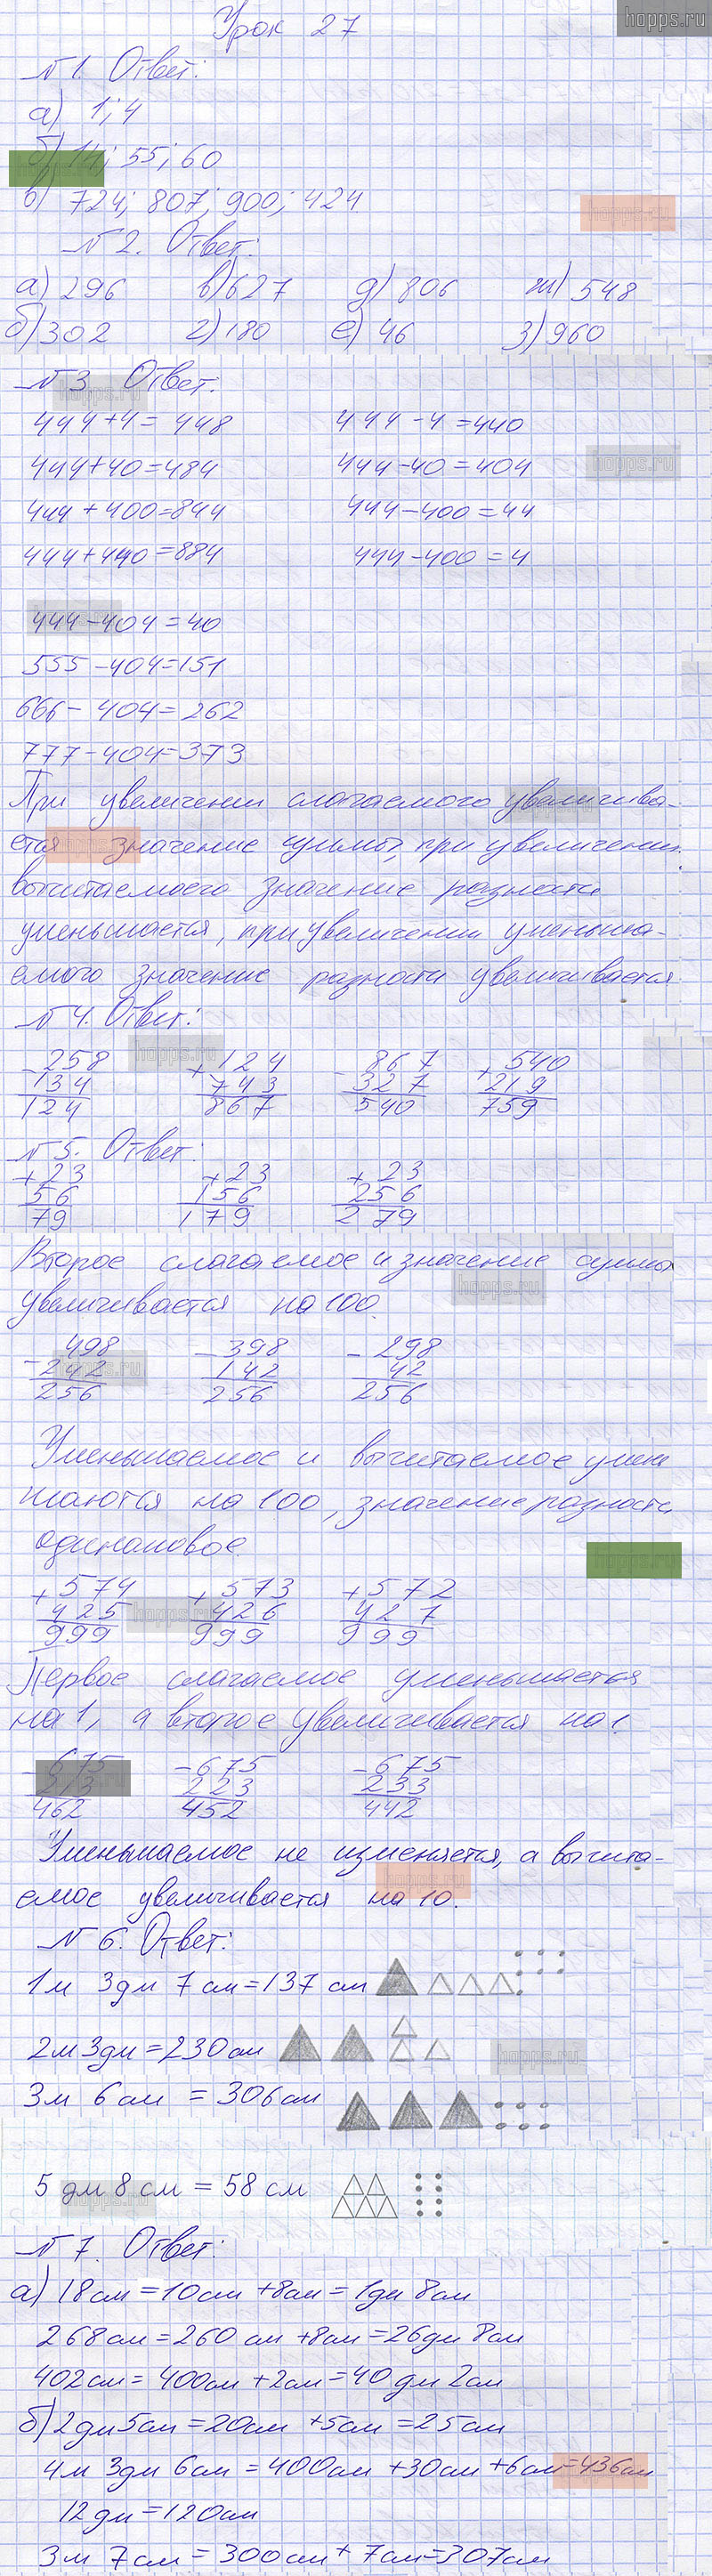 hopps.ru
Урок 27
№ 1. Ответ:
а) 1; 4
б) 14; 55; 60
в) 724; 807; 900; 424
№ 2. Ответ:
а) 296 в) 627 д) 806 ж) 548
б) 302 г) 180 е) 46 з) 960
№ 3 Ответ.
444+4= 448 444-4=440
444+40=484 444-40=404
444+400=844 444-400=44
444+440=884 444-400=4
444-404=40
555-404=151
666-404=262
777-404=373
При увеличении слагаемого увеличива-
ется значение суммы, при увеличении
вычитаемоего значение разности
уменьшается, при увеличении уменьша-
емого значение разности увеличивается
№ 4. Ответ:
-258 +124 -867 +540
134 743 327 219
124 867 540 759
№ 5. Ответ:
+23 +23 +23
56 156 256
79 179 279
Второе слагаемое и значение суммы
увеличивается на 100.
498 -398 -298
-242 142 42
256 256 256
Уменьшаемое и вычитаемое умень
шаются на 100, значение разности
одинаковое.
+574 +573 +572
425 426 427
999 999 999
Первое слагаемое уменьшается
на 1, а второе увеличивается на 1.
-675 -675 -675
213 223 233
462 452 442
Уменьшаемое не изменяется, а вычита-
емое увеличивается на 10.
№ 6. Ответ:
1м 3дм 7см=137см
2м 3дм=230см
3м 6см = 306см
5 дм 8 см = 58 см
№ 7. Ответ:
а) 18см=10см+8см=1дм 8см
268см=260см+8см=26дм 8см
402см=400см+2см=40дм 2см
б) 2дм5см=20см+5см=25см
4м 3дм 6см=400см+30см+6см=436см
12дм=120см
3м 7см=300см+7см=307см